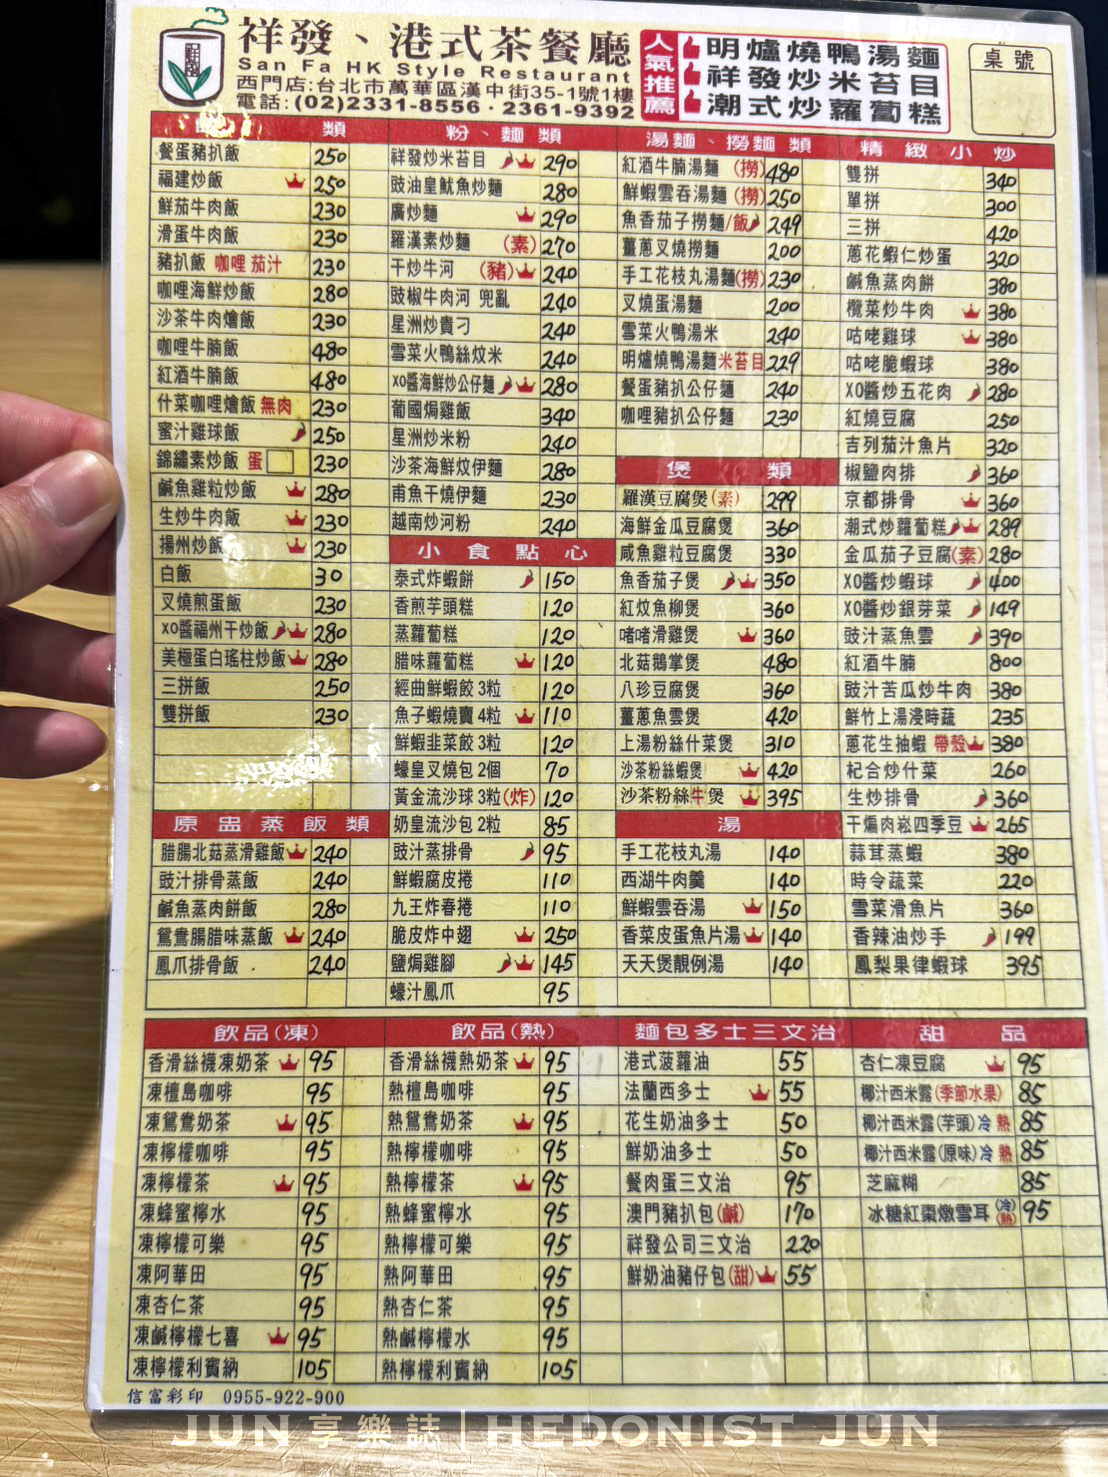 祥發、港式茶餐廳
San Fa HK Style Restaurant
西門店:台北市萬華區漢中街35-1號1樓
電話:(02)2331-8556・2361-9392
人氣推薦
明爐燒鴨湯麵
祥發炒米苔目
潮式炒蘿蔔糕
桌號
類
餐蛋豬扒飯 250
福建炒飯 250
鮮茄牛肉飯 230
滑蛋牛肉飯 230
豬扒飯 咖哩 茄汁 230
咖哩海鮮炒飯 280
沙茶牛肉燴飯 230
咖哩牛腩飯 480
紅酒牛腩飯 480
什菜咖哩燴飯 無肉 230
蜜汁雞球飯 250
錦繡素炒飯 蛋 230
鹹魚雞粒炒飯 280
生炒牛肉飯 230
揚州炒飯 230
白飯 30
叉燒煎蛋飯 230
XO醬福州干炒飯 280
美極蛋白瑤柱炒飯 280
三拼飯 250
雙拼飯 230
原盅蒸飯類
腊腸北菇蒸滑雞飯 240
豉汁排骨蒸飯 240
鹹魚蒸肉餅飯 280
鴛鴦腸腊味蒸飯 240
鳳爪排骨飯 240
粉、麵類
祥發炒米苔目 290
豉油皇魷魚炒麵 280
廣炒麵 290
羅漢素炒麵 (素) 270
干炒牛河 (豬) 240
豉椒牛肉河 兜亂 240
星洲炒貴刁 240
雪菜火鴨絲炆米 240
XO醬海鮮炒公仔麵 280
葡國焗雞飯 340
星洲炒米粉 240
沙茶海鮮炆伊麵 280
甫魚干燒伊麵 230
越南炒河粉 240
小食點心
泰式炸蝦餅 150
香煎芋頭糕 120
蒸蘿蔔糕 120
腊味蘿蔔糕 120
經曲鮮蝦餃 3粒 120
魚子蝦燒賣 4粒 110
鮮蝦韭菜餃 3粒 120
蠔皇叉燒包 2個 70
黃金流沙球 3粒(炸) 120
奶皇流沙包 2粒 85
豉汁蒸排骨 95
鮮蝦腐皮捲 110
九王炸春捲 110
脆皮炸中翅 250
鹽焗雞腳 145
蠔汁鳳爪 95
湯麵、撈麵類
紅酒牛腩湯麵 (撈) 480
鮮蝦雲吞湯麵 (撈) 250
魚香茄子撈麵/飯 249
薑蔥叉燒撈麵 200
手工花枝丸湯麵(撈) 230
叉燒蛋湯麵 200
雪菜火鴨湯米 240
明爐燒鴨湯麵米苔目 229
餐蛋豬扒公仔麵 240
咖哩豬扒公仔麵 230
煲類
羅漢豆腐煲(素) 299
海鮮金瓜豆腐煲 360
咸魚雞粒豆腐煲 330
魚香茄子煲 350
紅炆魚柳煲 360
啫啫滑雞煲 360
北菇鵝掌煲 480
八珍豆腐煲 360
薑蔥魚雲煲 420
上湯粉絲什菜煲 310
沙茶粉絲蝦煲 420
沙茶粉絲牛煲 395
湯
手工花枝丸湯 140
西湖牛肉羹 140
鮮蝦雲吞湯 150
香菜皮蛋魚片湯 140
天天煲靚例湯 140
精緻小炒
雙拼 340
單拼 300
三拼 420
蔥花蝦仁炒蛋 320
鹹魚蒸肉餅 380
欖菜炒牛肉 380
咕咾雞球 380
咕咾脆蝦球 380
XO醬炒五花肉 280
紅燒豆腐 250
吉列茄汁魚片 320
椒鹽肉排 360
京都排骨 360
潮式炒蘿蔔糕 289
金瓜茄子豆腐(素) 280
XO醬炒蝦球 400
XO醬炒銀芽菜 149
豉汁蒸魚雲 390
紅酒牛腩 800
豉汁苦瓜炒牛肉 380
鮮竹上湯浸時蔬 235
蔥花生抽蝦 帶殼 380
杞合炒什菜 260
生炒排骨 360
干煸肉崧四季豆 265
蒜茸蒸蝦 380
時令蔬菜 220
雪菜滑魚片 360
香辣油炒手 199
鳳梨果律蝦球 395
飲品(凍)
香滑絲襪凍奶茶 95
凍檀島咖啡 95
凍鴛鴦奶茶 95
凍檸檬咖啡 95
凍檸檬茶 95
凍蜂蜜檸水 95
凍檸檬可樂 95
凍阿華田 95
凍杏仁茶 95
凍鹹檸檬七喜 95
凍檸檬利賓納 105
飲品(熱)
香滑絲襪熱奶茶 95
熱檀島咖啡 95
熱鴛鴦奶茶 95
熱檸檬咖啡 95
熱檸檬茶 95
熱蜂蜜檸水 95
熱檸檬可樂 95
熱阿華田 95
熱杏仁茶 95
熱鹹檸檬水 95
熱檸檬利賓納 105
麵包多士三文治
港式菠蘿油 55
法蘭西多士 55
花生奶油多士 50
鮮奶油多士 50
餐肉蛋三文治 95
澳門豬扒包(鹹) 170
祥發公司三文治 220
鮮奶油豬仔包(甜) 55
甜品
杏仁凍豆腐 95
椰汁西米露(季節水果) 85
椰汁西米露(芋頭)冷 熱 85
椰汁西米露(原味)冷 熱 85
芝麻糊 85
冰糖紅棗燉雪耳 (冷熱) 95
信富彩印 0955-922-900
JUN享樂誌 | HEDONIST JUN